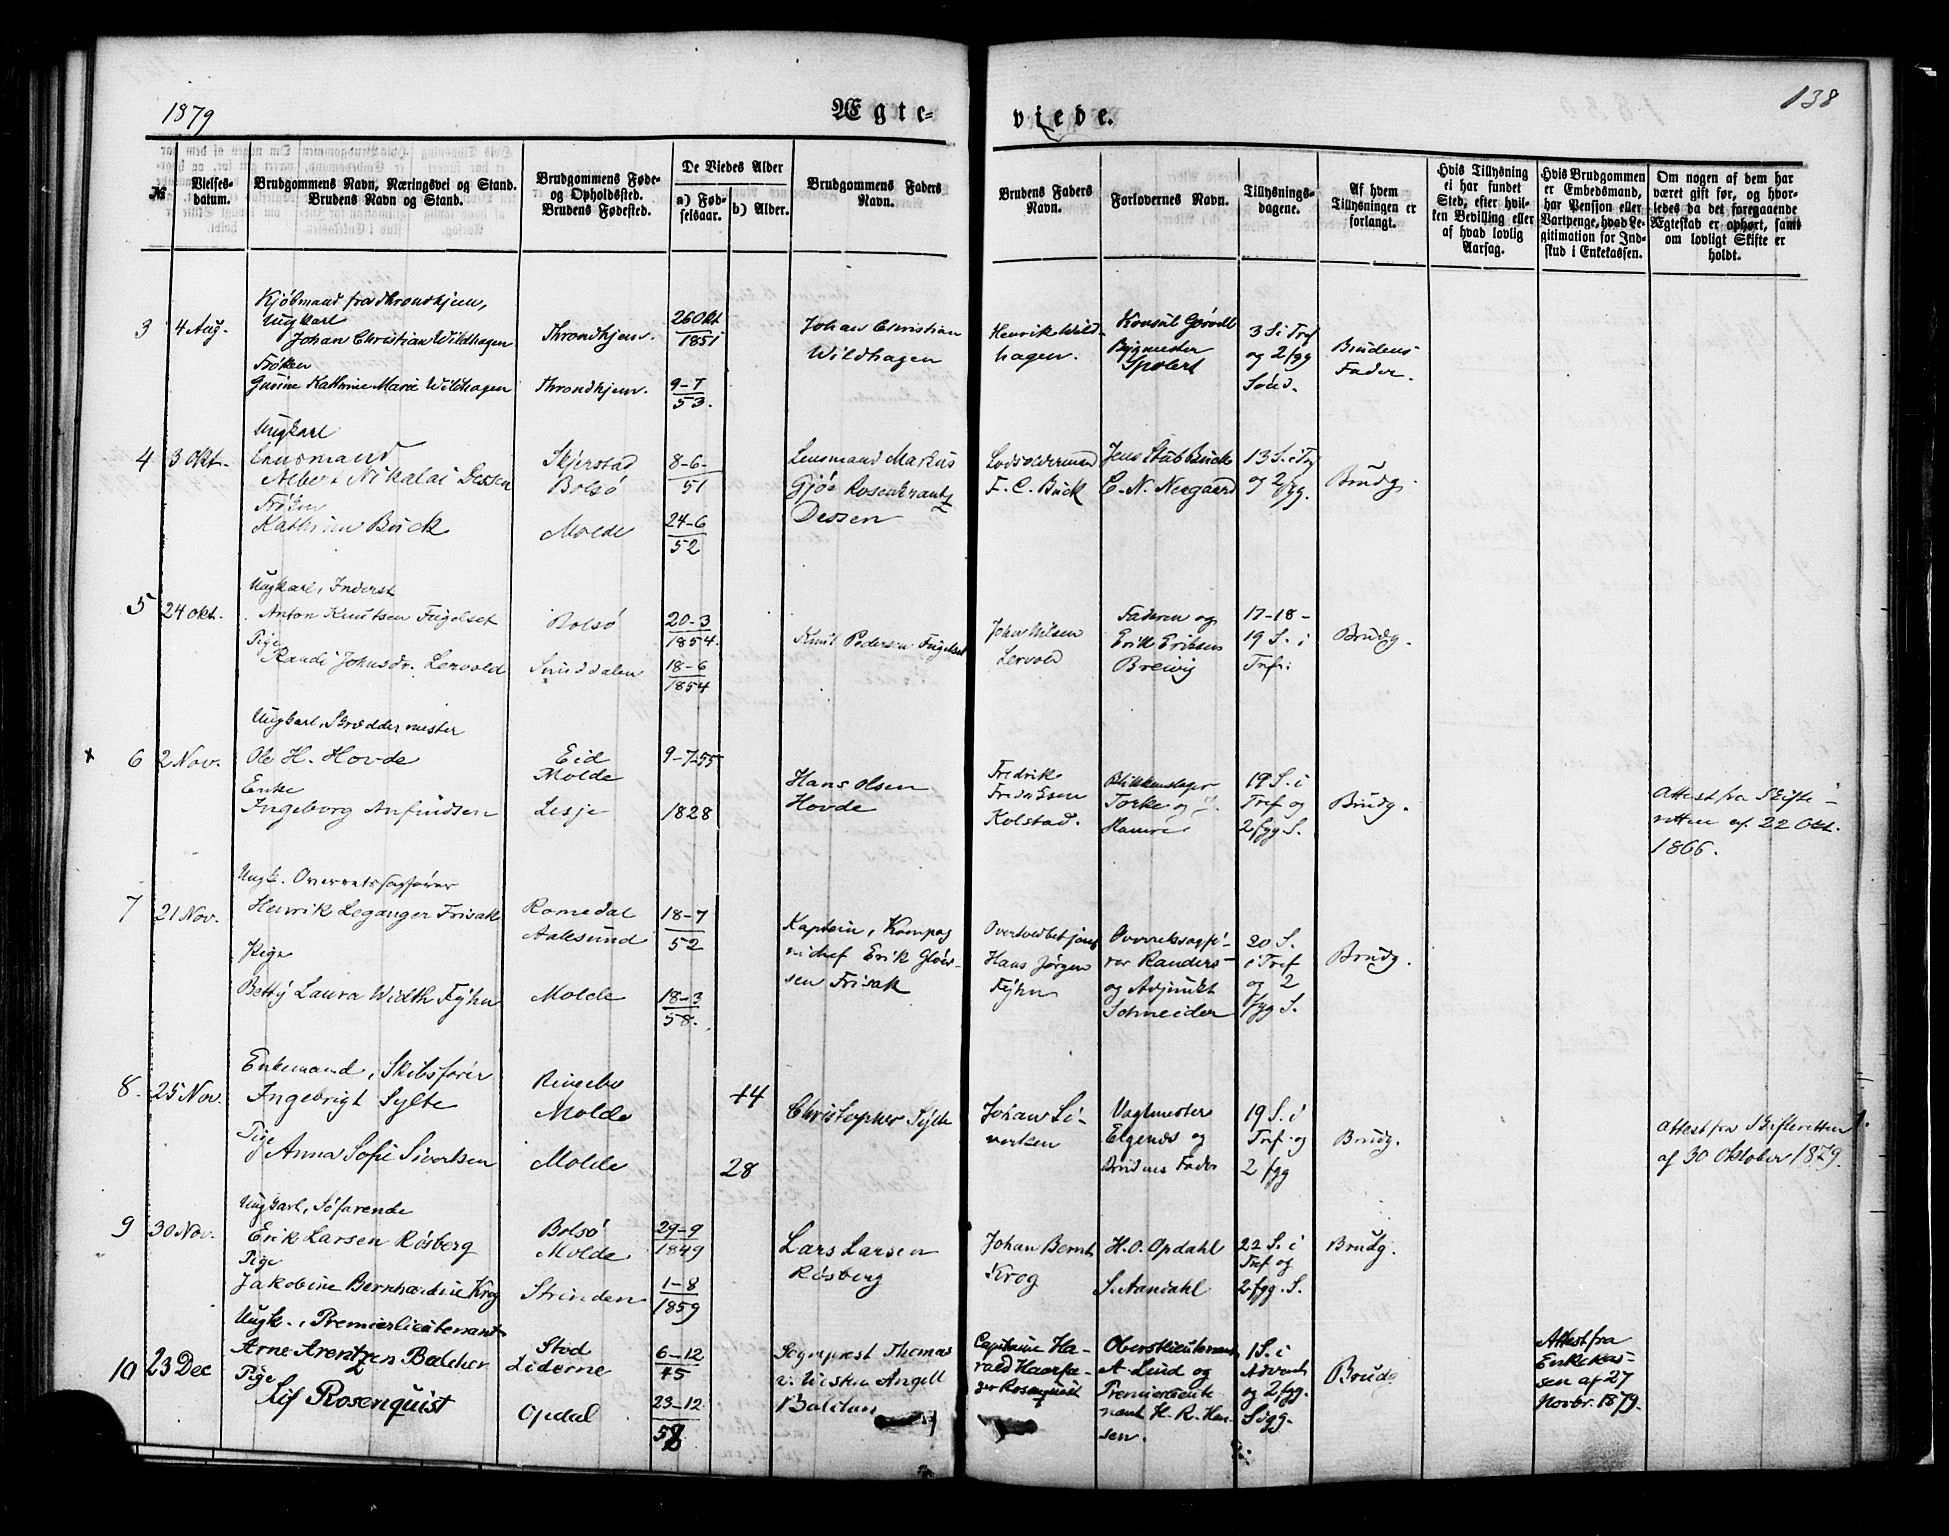 1879
Ægte-
viede.
138
№
Vielses-
datum.
Brudgommens Navn, Næringsvei og Stand.
Brudens Navn og Stand.
Brudgommens Føde-
og Opholdssted.
Brudens Fødested.
De Viedes Alder
a) Fød-
selsaar.
b) Alder.
Brudgommens Faders
Navn.
Brudens Faders
Navn.
Forlovernes Navn.
Tillysnings-
dagene.
Af hvem
Tillysningen er
forlangt.
Hvis Tillysning
ei har fundet
Sted, efter hvil-
ken Bevilling eller
af hvad lovlig
Aarsag.
Hvis Brudgommen
er Embedsmand,
har Pension eller
Vartpenge, hvad Le-
gitimation for Ind-
skud i Enkekassen.
Om nogen af dem har
været gift før, og hvor-
ledes da det foregaaende
Ægteskab er ophørt, samt
om lovligt Skifte er
holdt.
3
4 Aug.
Kjøbmand fra Throndhjem,
Ungkarl
Johan Christian Wildhagen
Frøken
Gusine Kathrine Marie Wildhagen
Throndhjem.
Throndhjem.
26 Okt
1851
9-7
53.
Johan Christian
Wildhagen
Henrik Wild-
hagen.
Konsul
Bygmester
3 S. i Tref
og 2 fgg
Sønd.
Brudens
Fader.
4
3 Okt.
Ungkarl
Lensmand
Albert Nikolai Dessen
Frøken
Kathrine Buck
Skjerstad
Bolsø
Molde
8-6-
51
24-6
52
Lensmand Markus
Gjøe Rosenkrantz
Dessen
Lodsolderman
F. C. Buck
Jens Stub Buck
C. N. Neegaard
13 S. i Trf
og 2 fgg.
Brudg.
5
24 Okt.
Ungkarl, Inderst
Anton Knutsen Fugelset
Pige
Randi Johnsdr. Lervold
Bolsø
Sunddalen
20-3
1854.
18-6
1854
Knut Pedersen Fugelset
John Nilsen
Lervold
Faderen og
Erik Eriksen
Breivig
17-18-
19 S. i
Tref.
Brudg.
x
6
2 Nov.
Ungkarl, Skræddermester
Ole H. Hovde
Enke
Ingeborg Anfindsen
Eid
Molde
Lesje
9-7-55
1828
Hans Olsen
Hovde
Fredrik
Fredriksen
Kolstad.
Blikkenslager
Torke og
Hamre
19 S. i
Tref og
2 fgg S.
Brudg.
Attest fra Skifte-
retten af 22 Okt.
1866.
7
21 Nov.
Ungk. Overretssagfører
Henrik Leganger Frisak
Pige
Betty Laura Width Fyhn
Romedal
Aalesund
Molde
18-7
52
18-3
58.
Kaptein, Kompag
nichef Erik
sen Frisak
Overtoldbetjent
Hans Jørgen
Fyhn
Overretssagfø-
rer Randers-
og Adjunkt
Schneider
20 S.
i Tref
og 2
fgg S.
Brudg.
8.
25 Nov.
Enkemand, Skibsfører
Ingebrigt Sylte
Pige
Anna Sofie Sivertsen
Ringebo
Molde
Molde
44
28
Christopher Sylte
Johan Si-
vertsen
Vagtmester
Elgenes og
Brudens Fader
19 S. i
Tref og
2 fgg
Brudg.
Attest fra Skifteretten
af 30 Oktober 1879.
9
30 Nov.
Ungkarl, Søfarende
Erik Larsen Røsberg
Pige
Jakobine Bernhardine Krog
Bolsø
Molde
Strinden
29-9
1849
1-8
1859
Lars Larsen
Røsberg
Johan Bernt
Krog
H. O. Opdahl
S. Aandahl
22 S. i
Tref og
2 fgg. S.
Brudg.
10
23 Dec
Ungk., Premierlieutenant
Arne Arentzen Balchen
Pige
Lif Rosenquist
Stod
Liderne
Opdal
6-12
45
23-12
58
Sogneprest Thomas
v. Westen Angell
Balchen
Capitaine Ha-
rald Haarfa-
ger Rosenquist
Oberstlieutenant
A. Lund og
Premierlieute-
nant H. R. Han-
sen.
1 S. i
Advent
og 2 fgg.
Søgg.
Brudg
Attest fra
Enkekas-
sen af 27
Novbr. 1879.